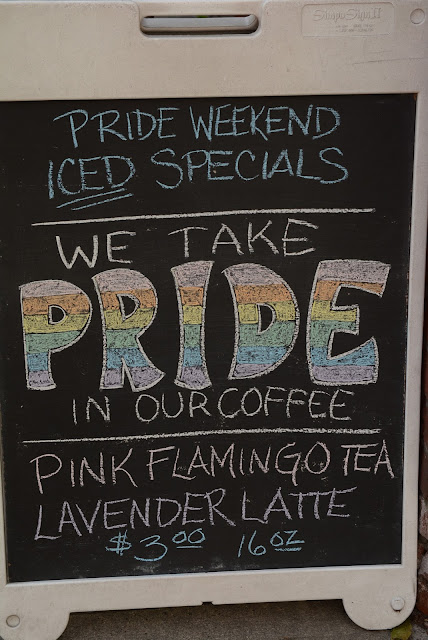 PRIDE WEEKEND
ICED SPECIALS
WE TAKE
PRIDE
IN OUR COFFEE
PINK FLAMINGO TEA
LAVENDER LATTE
$3.00 16 OZ